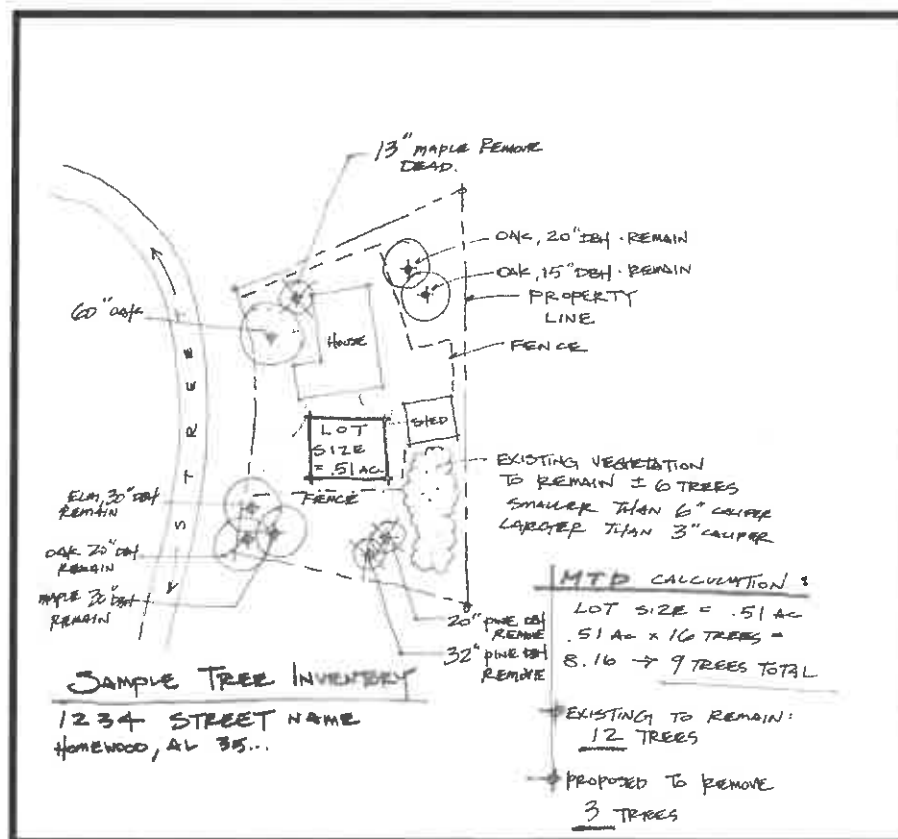 13" MAPLE REMOVE
DEAD.
OAK, 20" DBH - REMAIN
OAK, 15" DBH - REMAIN
PROPERTY
LINE
FENCE
60" OAK
HOUSE
STREET
LOT
SIZE
= .51 AC
SHED
EXISTING VEGETATION
TO REMAIN ± 6 TREES
SMALLER THAN 6" CALIPER
LARGER THAN 3" CALIPER
FENCE
ELM, 30" DBH
REMAIN
OAK 20" DBH
REMAIN
MAPLE 30" DBH
REMAIN
20" PINE DBH
REMOVE
32" PINE DBH
REMOVE
MTD CALCULATION:
LOT SIZE = .51 AC
.51 AC x 16 TREES =
8.16 → 9 TREES TOTAL
EXISTING TO REMAIN:
12 TREES
PROPOSED TO REMOVE
3 TREES
SAMPLE TREE INVENTORY
1234 STREET NAME
HOMEWOOD, AL 35...